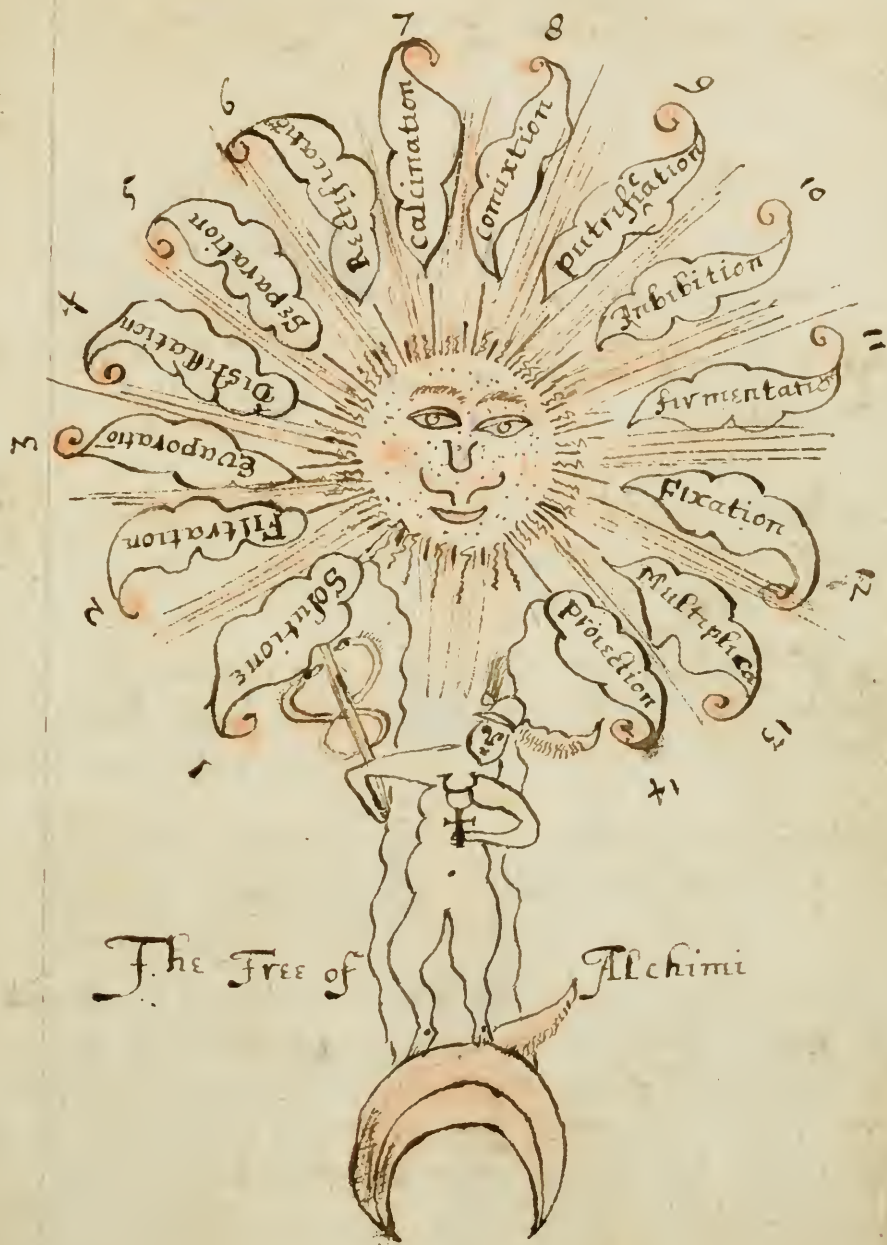 1
Solutione
2
Filtration
3
Evaporatio
4
Distillation
5
Separation
6
7
calcination
8
comixtion
9
putrification
10
Inbibition
11
firmentatio
12
Fixation
13
Multiplica
14
proiection
The Tree of Alchimi